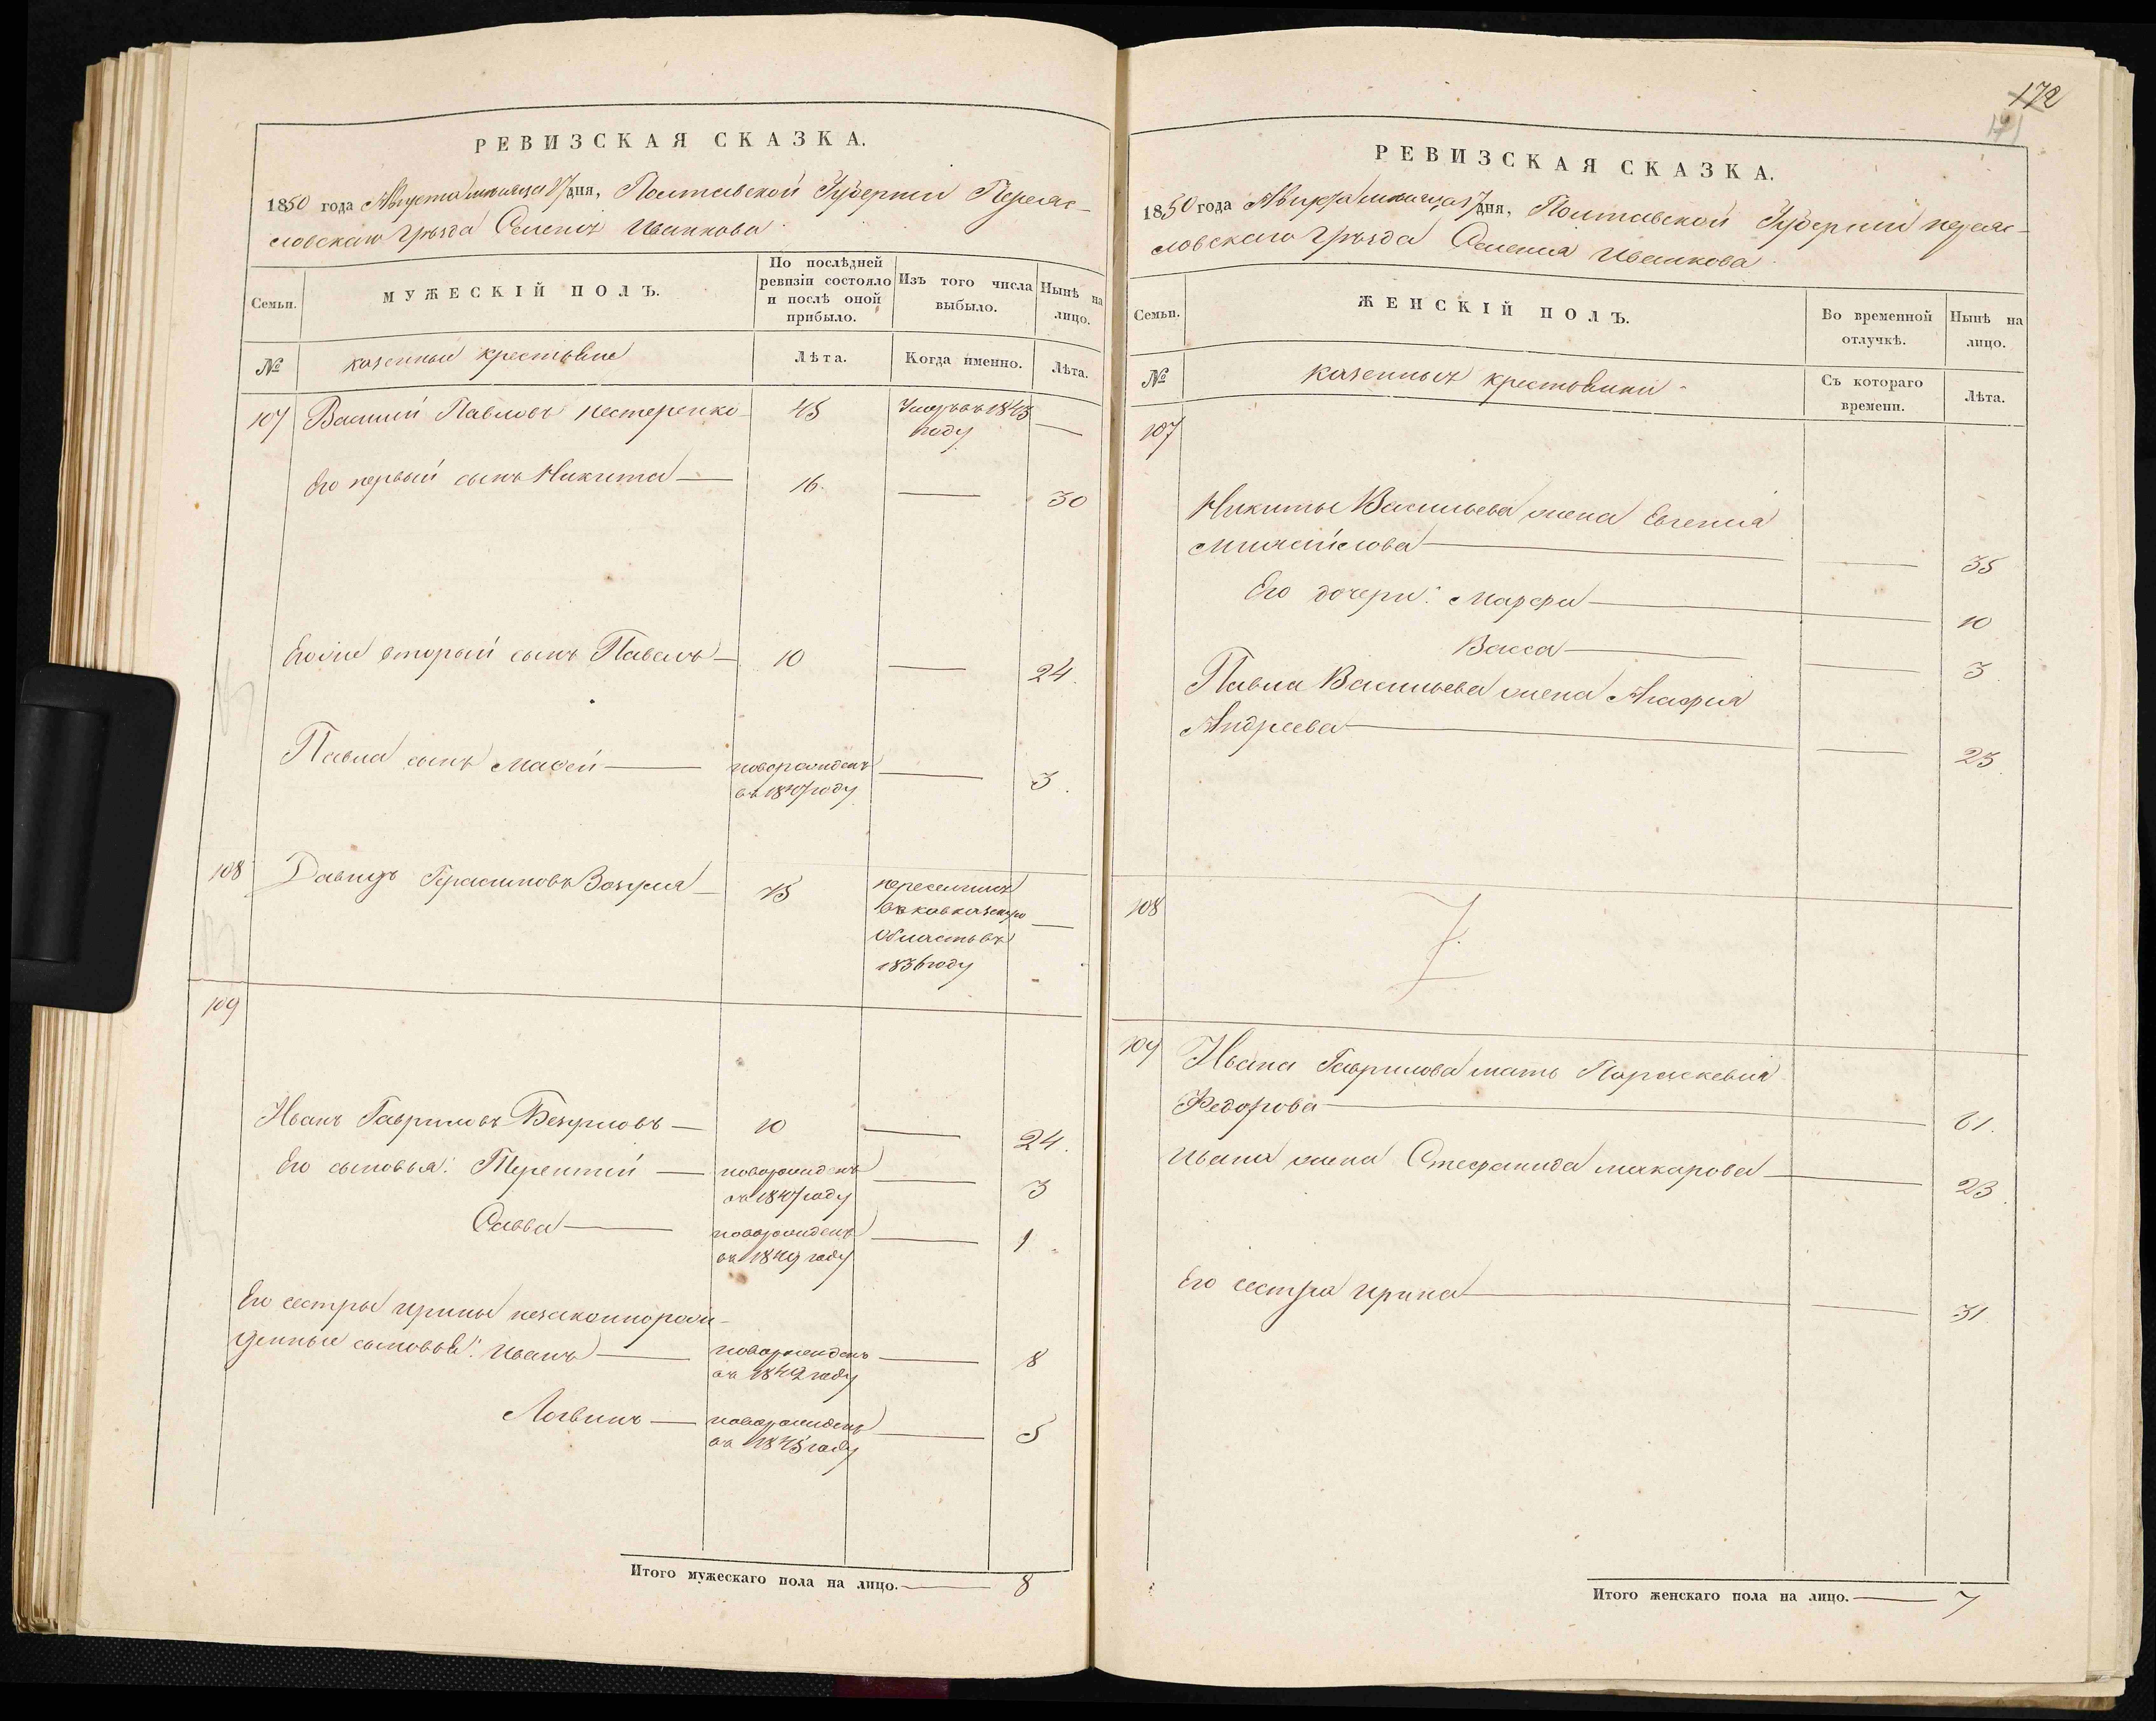 РЕВИЗСКАЯ СКАЗКА.
1850 года Августа месяца 17 дня, Полтавской Губернии Переяс-
словскаго Уѣзда Селенія Иванкова
Семьи.
МУЖЕСКІЙ ПОЛЪ.
По послѣдней ревизіи состояло и послѣ оной прибыло.
Изъ того числа выбыло.
Нынѣ на лицо.
№
казенные крестьяне
Лѣта.
Когда именно.
Лѣта.
107 Василий Павловъ Нестеренко 45 Умеръ въ 1843 —
году
Его первый сынъ Никита — 16. — 30
Егоже второй сынъ Павелъ — 10 — 24.
Павла сынъ Мафей — новорожденъ — 3.
въ 1847 году
108 Давидъ Герасимовъ 45 переселился
въ кавказскую —
Область въ
1836 году
109
Иванъ Гавриловъ Безусловъ — 10 — 24.
Его сыновья: Терентий — новорожденъ — 3
въ 1847 году
Савва — новорожденъ — 1
въ 1849 году
Его сестры Ирины незаконнорож-
денные сыновья: Иванъ — новорожденъ — 8
въ 1842 году
Логвинъ — новорожденъ — 5
въ 1845 году
Итого мужескаго пола на лицо. — 8
172
171
РЕВИЗСКАЯ СКАЗКА.
1850 года Августа месяца 17 дня, Полтавской Губернии переяс-
словскаго Уѣзда Селения Иванкова
Семьи.
ЖЕНСКІЙ ПОЛЪ.
Во временной отлучкѣ.
Нынѣ на лицо.
№
казенных крестьянки
Съ котораго времени.
Лѣта.
107
Никиты Васильева жена Евгения
Михайлова — — 35
Его дочери: Марфа — 10
Васса — — 3
Павла Васильева жена Агафия
Андреева — — 23
108
109 Ивана Гаврилова мать Параскевия
Федорова — 61.
Ивана жена Стефанида макарова — 23.
Его сестра Ирина — — 31
Итого женскаго пола на лицо. — 7